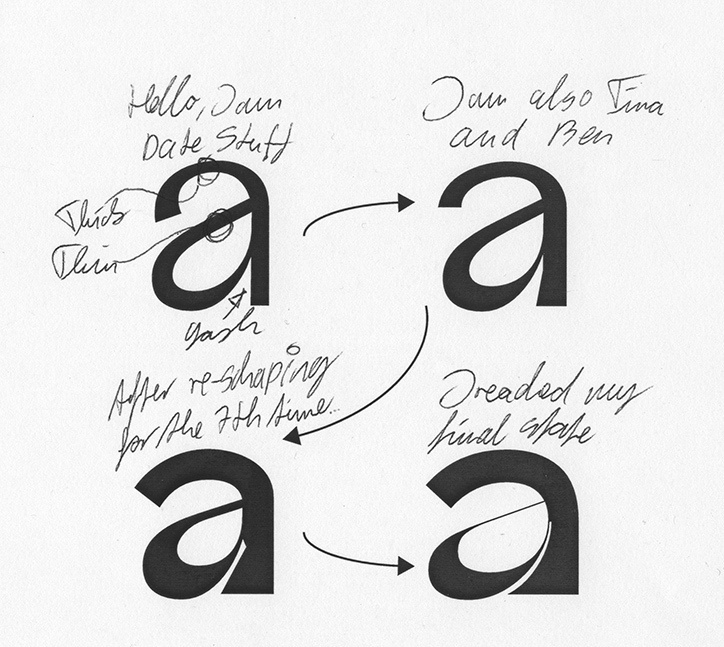 Hello, I am
Date Stuff
a
Thick
Thin
gash
I am also Tina
and Ben
a
After re-schaping
for the 7th time...
a
I readed my
final state
a